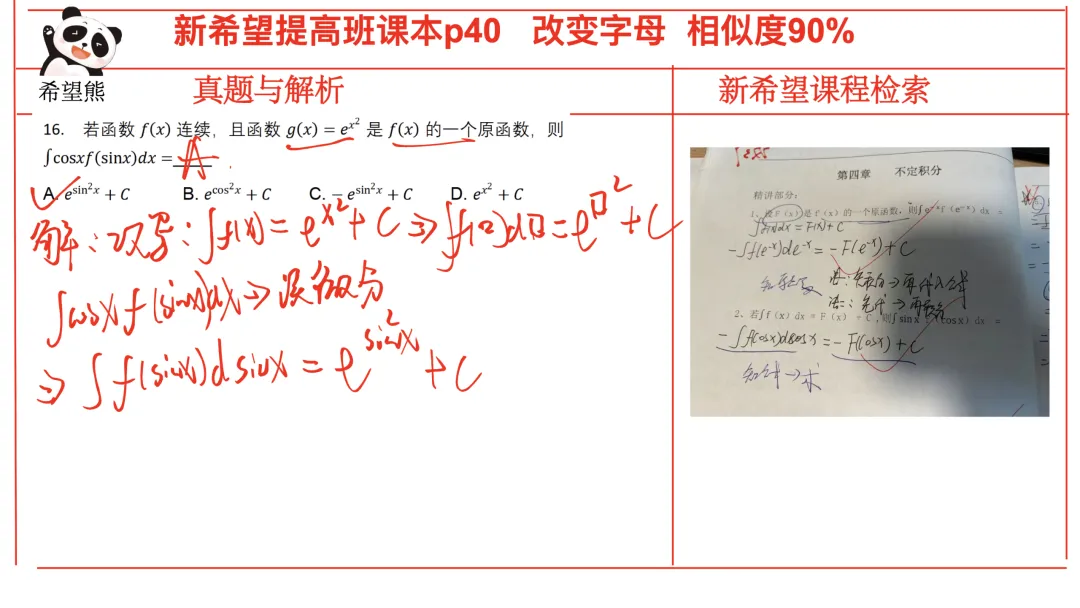 新希望提高班课本p40 改变字母 相似度90%
希望熊
真题与解析
新希望课程检索
16. 若函数 f(x) 连续，且函数 g(x) = e^{x^2} 是 f(x) 的一个原函数，则
∫cosxf(sinx)dx = A .
A. e^{sin^2x} + C B. e^{cos^2x} + C C. −e^{sin^2x} + C D. e^{x^2} + C
解：双导：∫f(x) = e^{x^2} + C ⇒ ∫f(口)d口 = e^{口^2} + C
∫cosx f(sinx)dx ⇒ 凑微分
⇒ ∫f(sinx)dsinx = e^{sin^2x} + C
第四章 不定积分
精讲部分：
1、设F(x)是f(x)的一个原函数，则∫e^{-x}f(e^{-x})dx =
∫f(x)dx = F(x)+C
-∫f(e^{-x})de^{-x} = -F(e^{-x})+C
2、若∫f(x)dx = F(x) + C，则∫sinx f(cosx)dx =
-∫f(cosx)dcosx = -F(cosx)+C